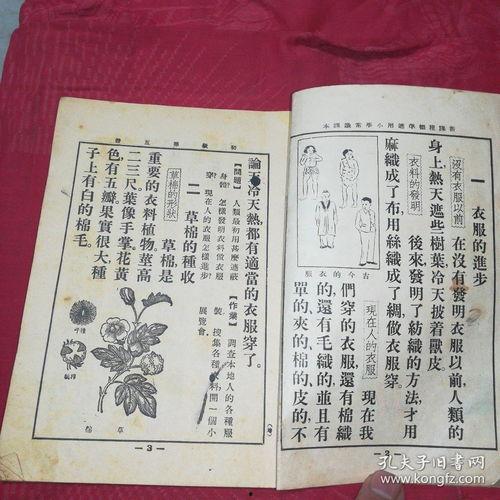 新課程標準適用小學常識課本
一 衣服的進步
沒有衣服以前 在沒有發明衣服以前，人類的
身上熱天遮些樹葉冷天披着獸皮。
衣料的發明 後來發明了紡織的方法才用
麻織成了布，用絲織成了綢做衣服穿。
現在人的衣服 現在我
們穿的衣服，還有棉織
的，還有毛織的，並且有
單的，夾的，棉的，皮的，不
古今的衣服
2
初級第五冊
論天冷天熱都有適當的衣服穿了。
【問題】人類最初用甚麼遮蔽
身體？怎樣發明衣料做衣服
穿？現在人的衣服怎樣進步？
【作業】調查本地人的各種服
裝，搜集各種衣料開一個小
展覽會。
二 草棉的種收
草棉的形狀 草棉是
重要的衣料植物莖高
二三尺，葉像手掌，花黃
色，有五瓣，果實很大，種
子上有白的棉毛。
草棉
3
孔夫子旧书网
www.kongfz.com